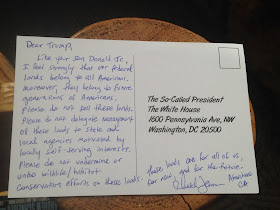 Dear Trump,
Like your son Donald Jr.,
I feel strongly that our federal
lands belong to all Americans.
Moreover, they belong to future
generations of Americans.
Please do not sell these lands.
Please do not delegate management
of these lands to state and
local agencies motivated by
locally self-serving interests.
Please do not undermine or
undo wildlife/habitat
conservation efforts on these lands.
The So-Called President
The White House
1600 Pennsylvania Ave, NW
Washington, DC 20500
These lands are for all of us,
for now, and for the future.
CA